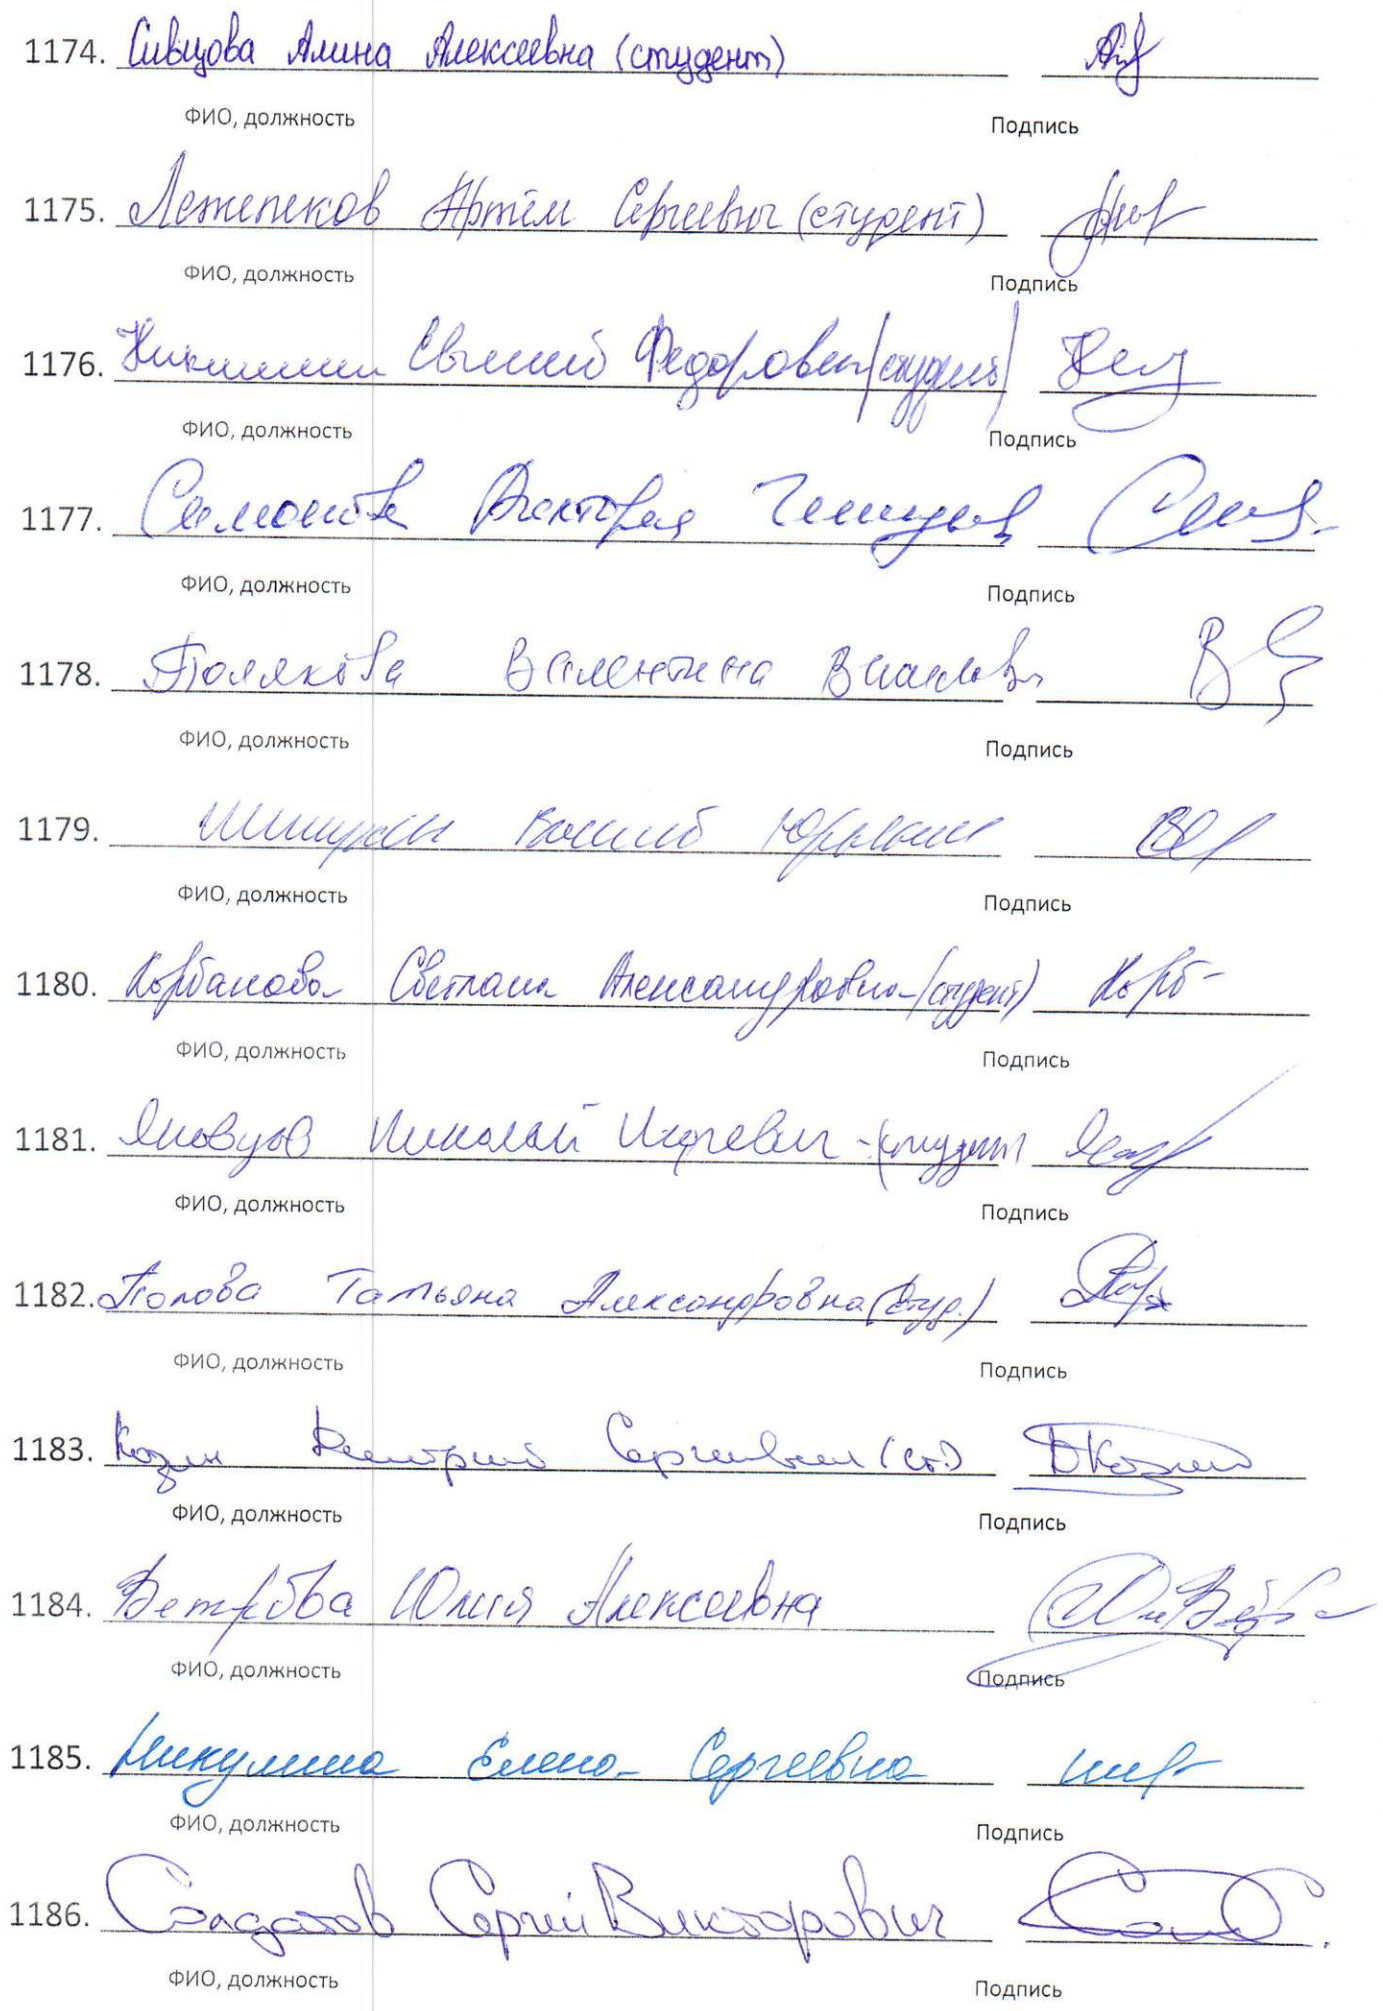 1174. Сивцова Алина Алексеевна (студент)
ФИО, должность Подпись
1175. Лежепеков Артём Сергеевич (студент)
ФИО, должность Подпись
1176. Евгений Федорович (студент)
ФИО, должность Подпись
1177. Виктория
ФИО, должность Подпись
1178. Полякова Валентина
ФИО, должность Подпись
1179. Юрьевич
ФИО, должность Подпись
1180. Корбакова Светлана Александровна (студент) Корб-
ФИО, должность Подпись
1181. Николай Игоревич - (студент)
ФИО, должность Подпись
1182. Попова Татьяна Александровна (студ.)
ФИО, должность Подпись
1183. Козин Дмитрий Сергеевич (ст.)
ФИО, должность Подпись
1184. Ветрова Юлия Алексеевна
ФИО, должность Подпись
1185. Никулина Елена Сергеевна
ФИО, должность Подпись
1186. Солдатов Сергей Викторович
ФИО, должность Подпись